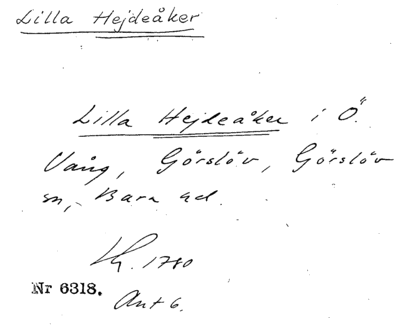 Lilla Hejdeåker
Lilla Hejdeåker i Ö.
Vång, Görslöv, Görslöv
sn, Bara hd.
Kg. 1780
Nr 6318.
Ant 6.